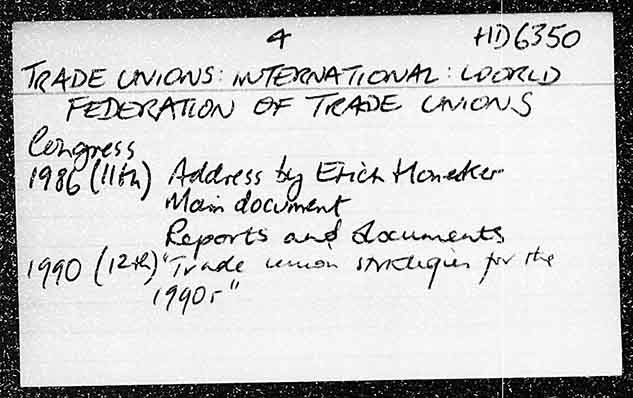 4 HD6350
TRADE UNIONS: INTERNATIONAL: WORLD
FEDERATION OF TRADE UNIONS
Congress
1986 (11th) Address by Erich Honecker
Main document
Reports and documents
1990 (12th) "Trade union strategies for the
1990s"